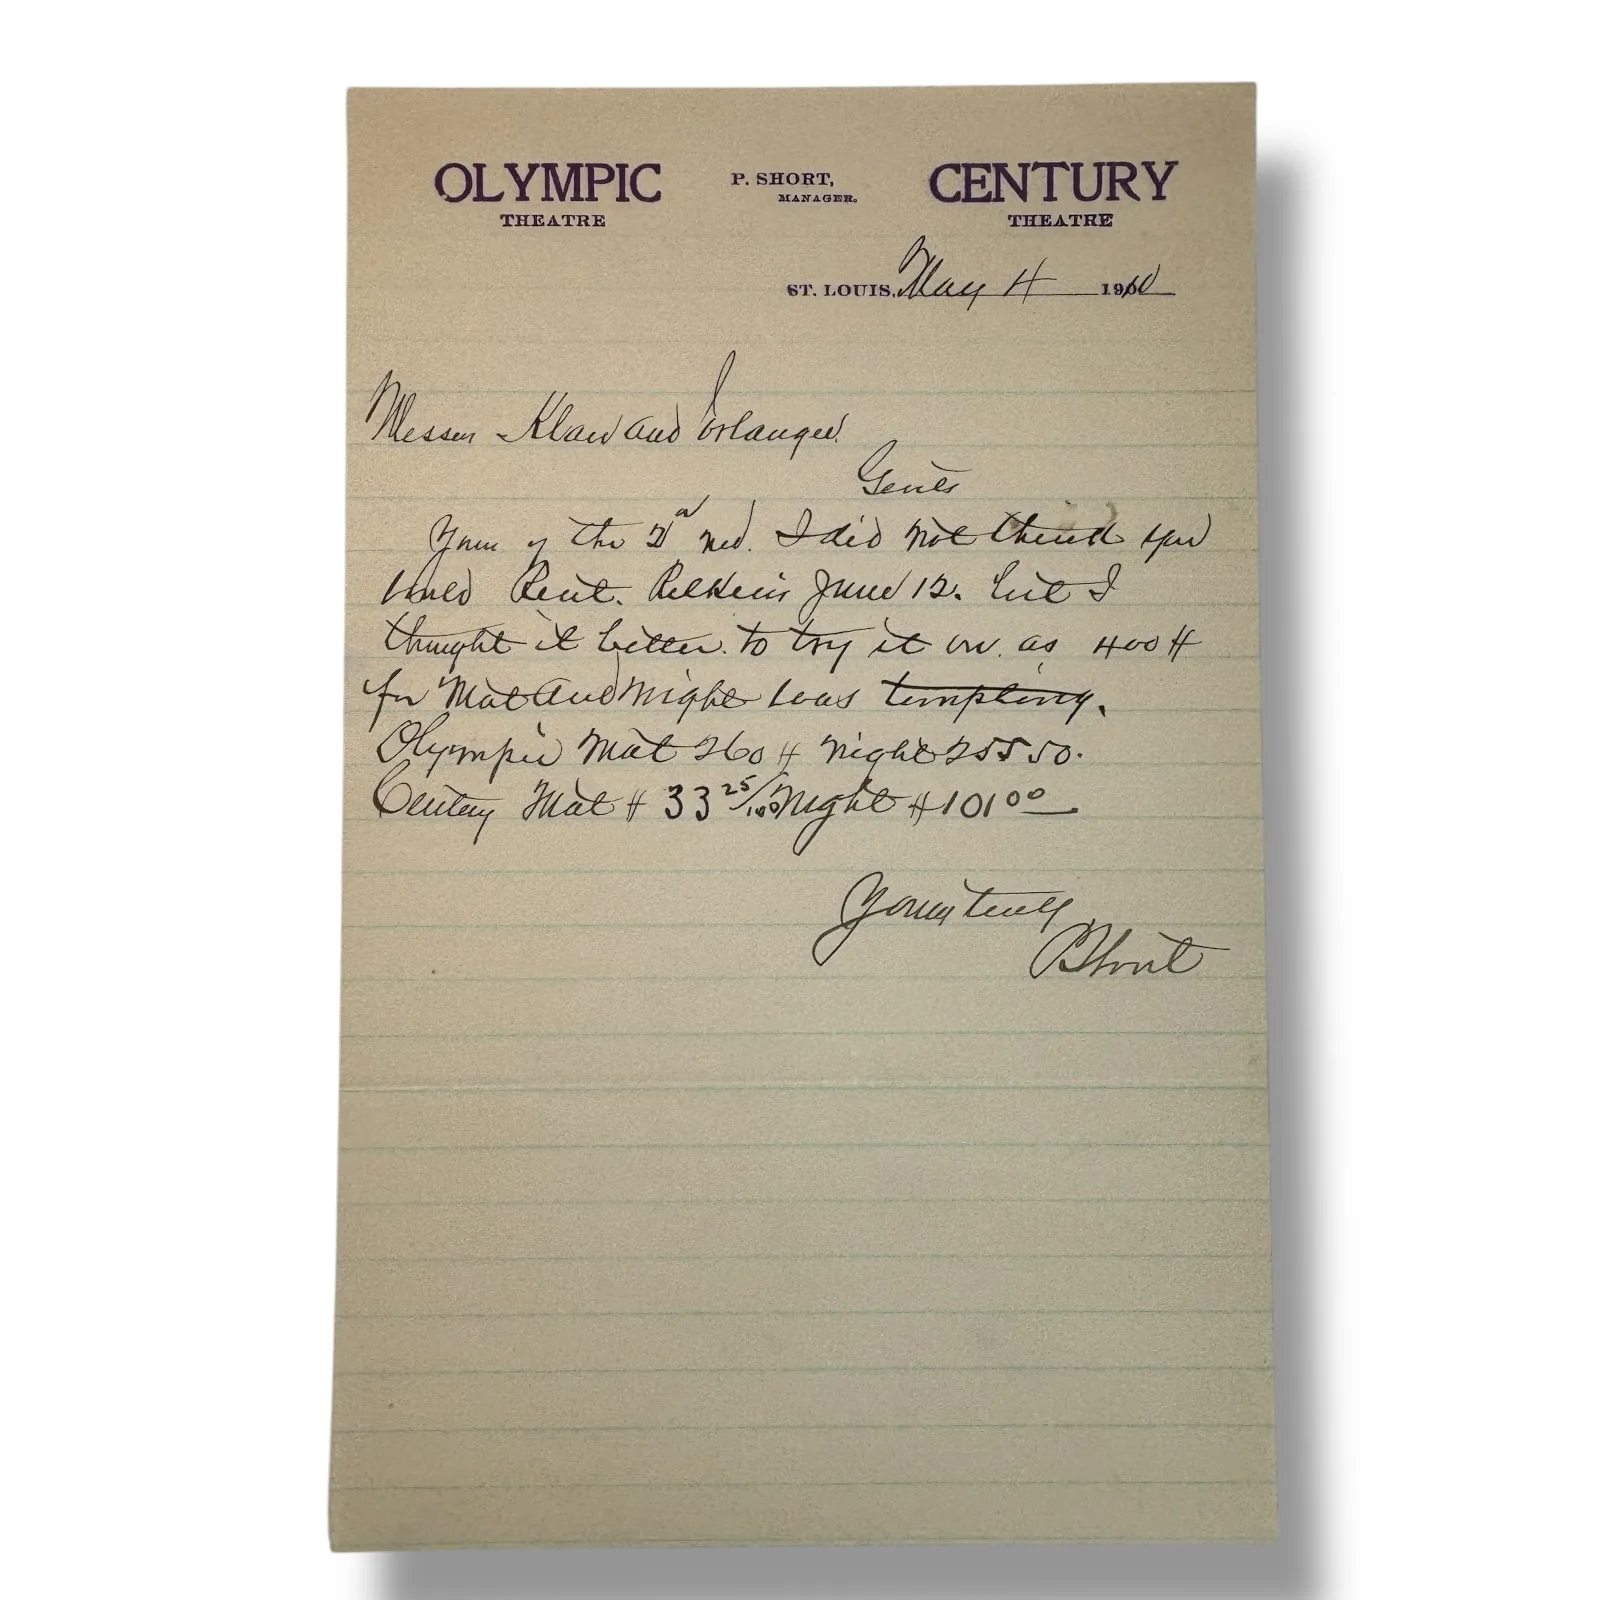 OLYMPIC
THEATRE
P. SHORT,
MANAGER.
CENTURY
THEATRE
ST. LOUIS, May 4 1910
Messrs Klaw and Erlanger
Gents
Yours of the 2d recd. I did not think you
would Rent. June 12. but I
thought it better. to try it on. as 400 $
for Mat and Night was tempting.
Olympic Mat 260 $ night 255 50.
Century Mat $ 33 25/100 Night $ 101 00
Yours truly
P Short